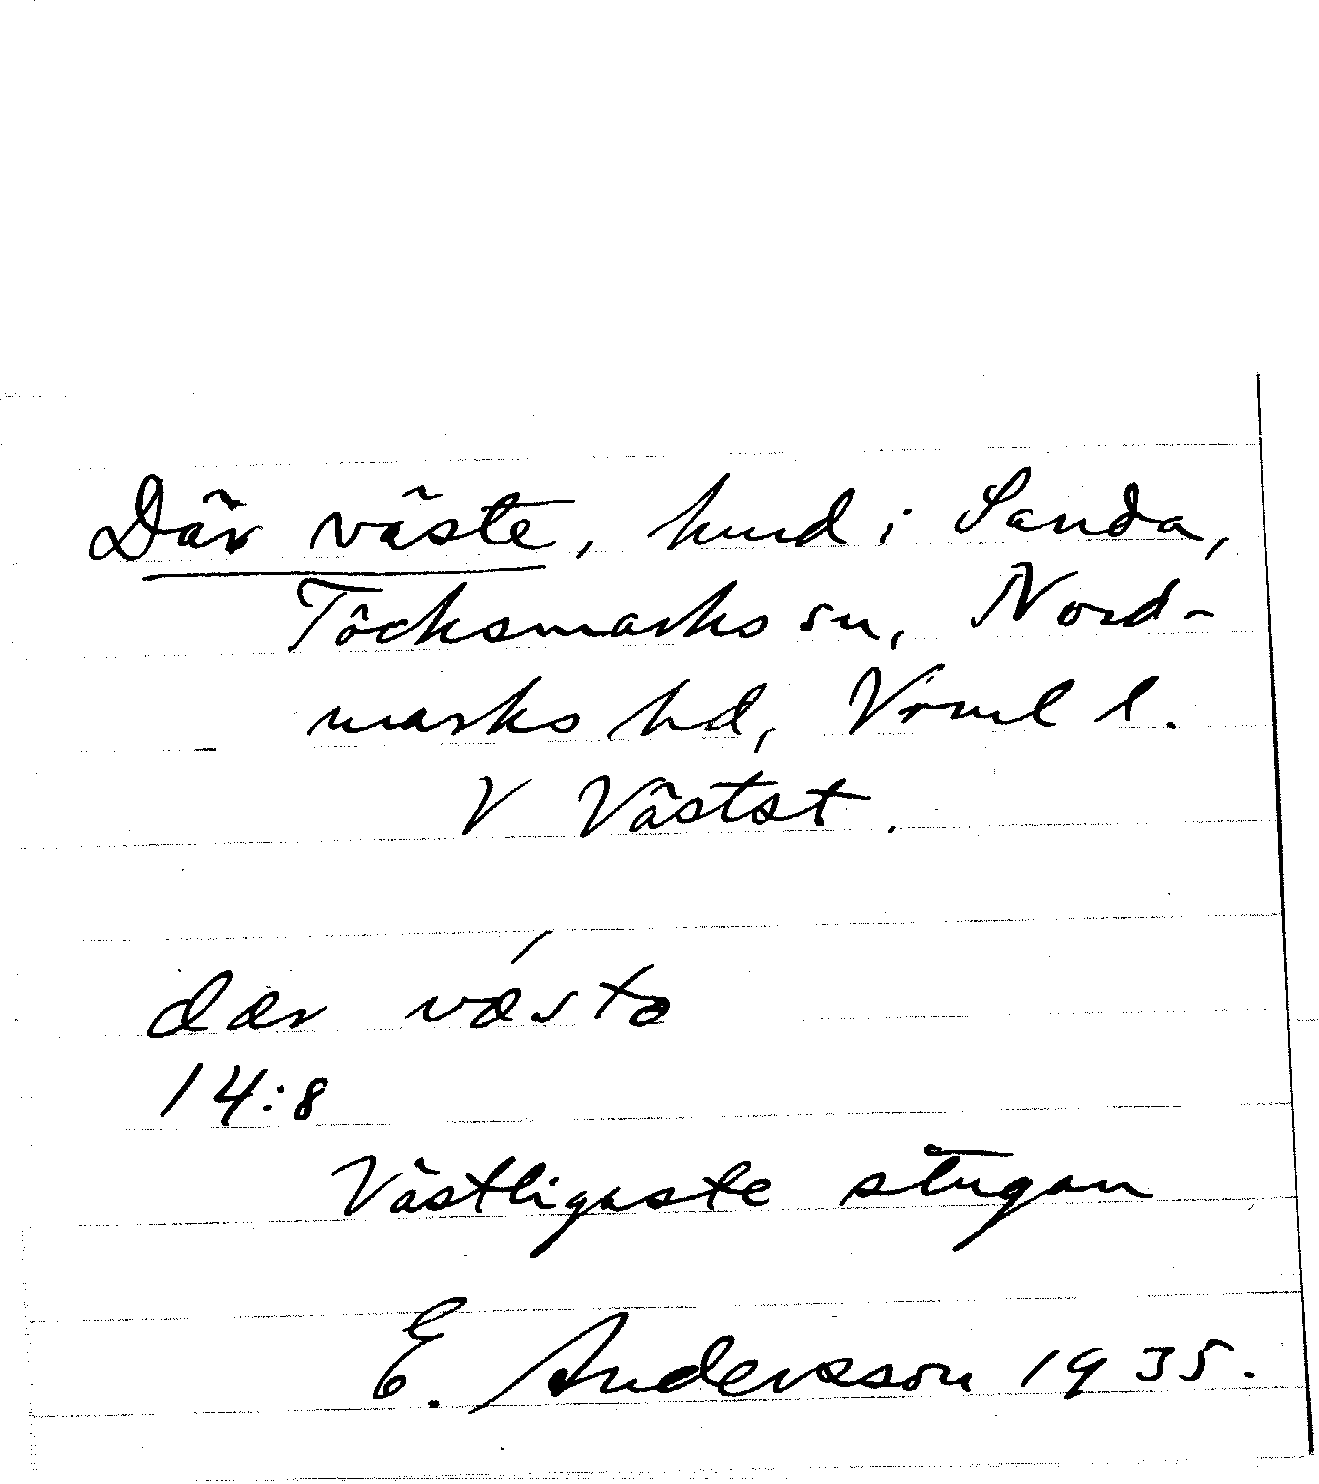 Där väste, hmd i Sanda,
Töcksmarks sn, Nord-
marks hd, Vrml l.
V Västst.
dær væ´stə
14:8
Västligaste stugan
E. Andersson 1935.